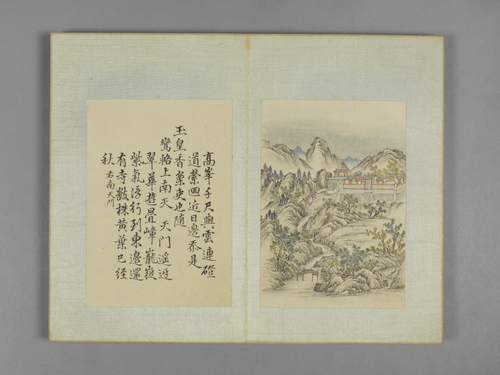 高峯千尺與雲連磴
道縈迴近日邊忝是
玉皇香案吏也隨
鸞輅上南天 天門遙
翠華 疊嶂巃嵷
紫氣浮行到東邊還
有寺數株黃葉已經
秋 右南天門